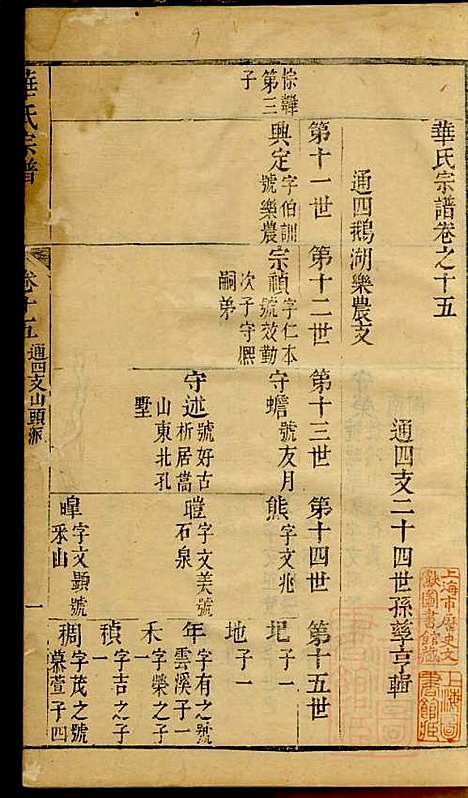 華氏宗譜卷之十五
通四支二十四世孫孳亨輯
通四鵝湖樂農支
第十一世 第十二世 第十三世 第十四世 第十五世
悰韡第三子
興定 字伯訓號樂農
宗禎 字仁本號效勤
次子守愳嗣弟
守蟾 號友月
熊 字文兆
圯 子一
地 子一
守述 號好古析居嵩山東北孔墅
暟 字文美號石泉
年 字有之號雲溪子一
禾 字榮之子一
暭 字文顥號釆山
稹 字吉之子一
稠 字茂之號慕萱子四
華氏宗譜
卷十五
通四支山頭派
一
上海市歷史文獻圖書館藏
上海圖書館藏